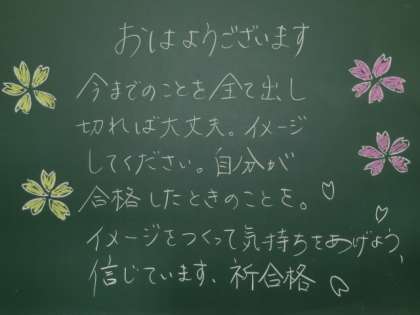 おはようございます
今までのことを全て出し
切れば大丈夫。イメージ
してください。自分が
合格したときのことを。
イメージをつくって気持ちをあげよう、
信じています、祈合格